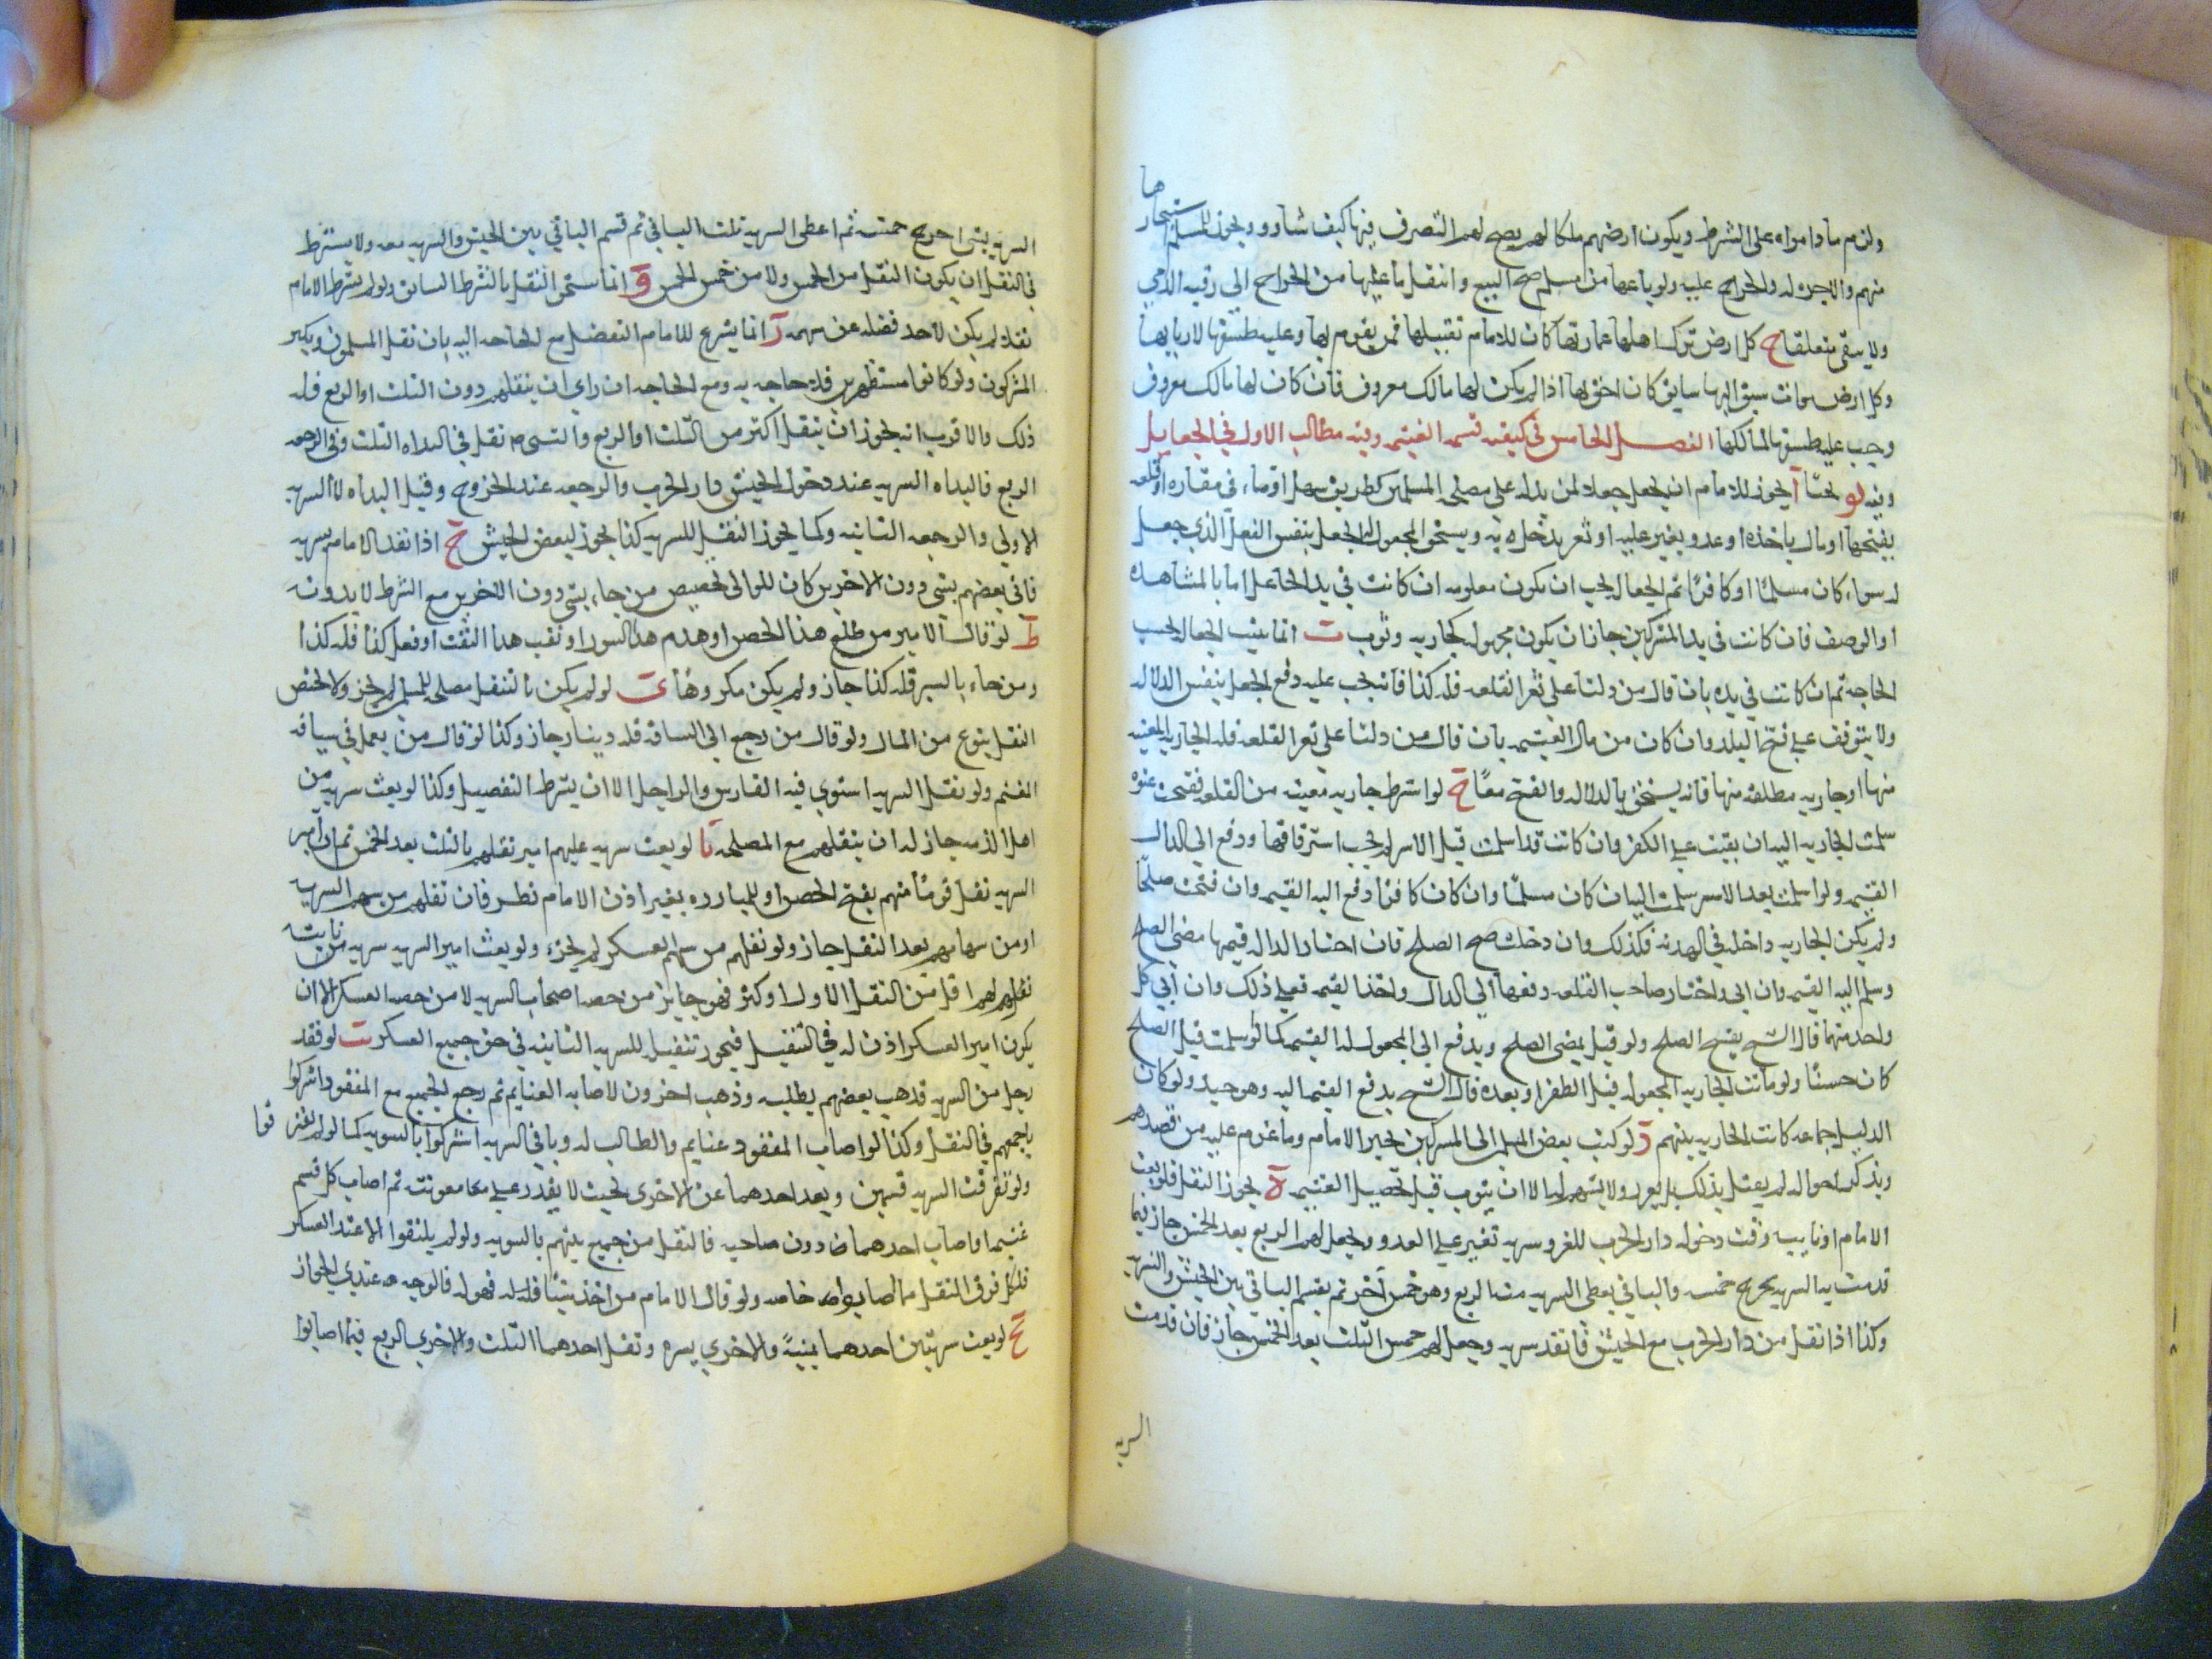 ها
ولزم ما داموا على الشرط ويكون ارضهم ملكا لهم يصح لهم التصرف فيها كيف شاوو ويجوز للمسلم استيجار
منهم والاجره له والخراج عليه ولو باعها من مسلم صح البيع وانتقل ما عليها من الخراج الى رقبه الذمي
ولا يبقى متعلقا ح كل ارض ترك اهلها عمارتها كان للامام تقبيلها ممن يقوم بها وعليه طسقها لاربابها
وكل ارض موات سبق اليها سابق كان احق بها اذا لم يكن لها مالك معروف فان كان لها مالك معروف
وجب عليه طسقها لمالكها الفصل الخامس في كيفيه قسمه الغنيمه وفيه مطالب الاول في الجعايل
وفيه لو بحثا آ يجوز للامام ان يجعل جعلا لمن يدله على مصلحه المسلمين كطريق سهل او ماء في مفازه او قلعه
يفتحها او مال ياخذه او عدو يغير عليه او ثغر يدخل منه ويستحق المجعول له الجعل بنفس الفعل الذي جعل
له سواء كان مسلما او كافرا ثم الجعاله يجب ان يكون معلومه ان كانت في يد الجاعل اما بالمشاهده
او الوصف فان كانت في يد المشركين جاز ان يكون مجهوله كجاريه وثوب ب انما يثبت الجعاله بحسب
الحاجه ثم ان كانت في يده بان قال من دلنا على ثغر القلعه فله كذا فانه يجب عليه دفع الجعل بنفس الدلاله
ولا يتوقف على فتح البلد وان كان من مال الغنيمه بان قال من دلنا على ثغر القلعه فله الجاريه المعينه
منها او جاريه مطلقه منها فانه يستحق بالدلاله والفتح معا ج لو اشترط جاريه معينه من القلعه ففتحت عنوه
سلمت الجاريه اليه ان بقيت على الكفر وان كانت قد اسلمت قبل الاسر لم يجب استرقاقها ودفع الى الدال
القيمه ولو اسلمت بعد الاسر سلمت اليه ان كان مسلما وان كان كافرا دفع اليه القيمه وان فتحت صلحا
ولم يكن الجاريه داخله في الهدنه فكذلك وان دخلت صح الصلح فان اختار الدال قيمتها مضى الصلح
وسلم اليه القيمه وان ابى واختار صاحب القلعه دفعها الى الدال واخذ القيمه فعل ذلك وان ابى كل
واحد منهما قال الشيخ يفسخ الصلح ولو قيل يمضى الصلح ويدفع الى المجعول له القيمه كما لو اسلمت قبل الصلح
كان حسنا ولو ماتت الجاريه المجعوله قبل الظفر او بعده قال الشيخ يدفع القيمه اليه وهو جيد ولو كان
الدليل جماعه كانت الجاريه بينهم د لو كتب بعض المسلمين الى المشركين بخبر الامام وما عزم عليه من قصدهم
ويذكر احواله لم يقتل بذلك بل يعزر ولا يسهم له الا ان يتوب قبل تحصيل الغنيمه ه يجوز النفل فلو بعث
الامام او نايبه وقت دخوله دار الحرب للغزو سريه تغير على العدو ويجعل لهم الربع بعد الخمس جاز فما
قدمت به السريه يخرج خمسه والباقي يعطى السريه منه الربع وهو خمس آخر ثم يقسم الباقي بين الجيش والسريه
وكذا اذا نفل من دار الحرب مع الجيش فانفذ سريه وجعل لهم خمس الثلث بعد الخمس جاز فان قدمت
السريه
السريه بشى اخرج خمسه ثم اعطى السريه ثلث الباقي ثم قسم الباقي بين الجيش والسريه معه ولا يشترط
في النفل ان يكون النفل من الخمس ولا من خمس الخمس و انما يستحق النفل بالشرط السابق ولو لم يشترط الامام
نفلا لم يكن لاحد فضله عن سهمه ز انما يشرع للامام التفضل مع الحاجه اليه بان تقل المسلمون ويكثر
المشركون ولو كانوا مستظهرين فلا حاجه به ومع الحاجه ان راى ان ينفلهم دون الثلث او الربع فله
ذلك والاقرب انه يجوز ان ينفل اكثر من الثلث او الربع والنبى ص نفل في البداه الثلث وفى الرجعه
الربع فالبداه السريه عند دخول الجيش دار الحرب والرجعه عند الخروج وقيل البداه لا السريه
الاولى والرجعه الثانيه وكما يجوز النفل للسريه كذا يجوز لبعض الجيش ح اذا نفذ الامام سريه
فاتى بعضهم بشى دون الاخرين كان للوالى تخصيص من جاء بشى دون الاخرين مع الشرط لا بدونه
ط لو قال الامير من طلع هذا الحصن او هدم هذا السور او نقب هذا النقب او فعل كذا فله كذا
ومن جاء باسير فله كذا جاز ولم يكن مكروها ى لو لم يكن بالتنفل مصلحه للمسلمين لم يجز ولا يختص
النفل بنوع من المال ولو قال من رجع الى الساقه فله دينار جاز وكذا لو قال من يعمل في سياقه
الغنم ولو نفل السريه استوى فيه الفارس والراجل الا ان يشترط التفصيل وكذا لو بعث سريه من
اهل الذمه جاز له ان ينفلهم مع المصلحه يا لو بعث سريه عليهم امير نفلهم بالثلث بعد الخمس ثم ان امير
السريه نفل قوما منهم بفتح الحصن او للمبارزه بغير اذن الامام نظر فان نفلهم من سهم السريه
او من سهامهم بعد النفل جاز ولو نفلهم من سهم العسكر لم يجز ولو بعث امير السريه سريه من نايبه
نفلهم لهم اقل من النفل الاول او اكثر فهو جايز من حصه اصحاب السريه لا من حصه العسكر الا ان
يكون امير العسكر اذن له في التنفيل فيجوز تنفيله للسريه الثانيه في حق جميع العسكر يب لو فقد
رجل من السريه فذهب بعضهم يطلبه وذهب اخرون لاصابه الغنايم ثم رجع الجميع مع المفقود اشتركوا
باجمعهم في النفل وكذا لو اصاب المفقود غنايم والطالب له وباقى السريه اشتركوا بالسويه كما لو لم يفتر قوا
ولو تفرقت السريه قسمين وبعد احدهما عن الاخرى بحيث لا يقدر على معونته ثم اصاب كل قسم
غنيمه او اصاب احدهما دون صاحبه فالنفل من جميع بينهم بالسويه ولو لم يلتقوا الا عند العسكر
فلكل فرق النفل مما اصابوا خاصه ولو قال الامام من اخذ شيئا فهو له فالوجه عندي الجواز
يج لو بعث سريتين احدهما يمنة والاخرى يسره ونفل احدهما الثلث والاخرى الربع فيما اصابوا